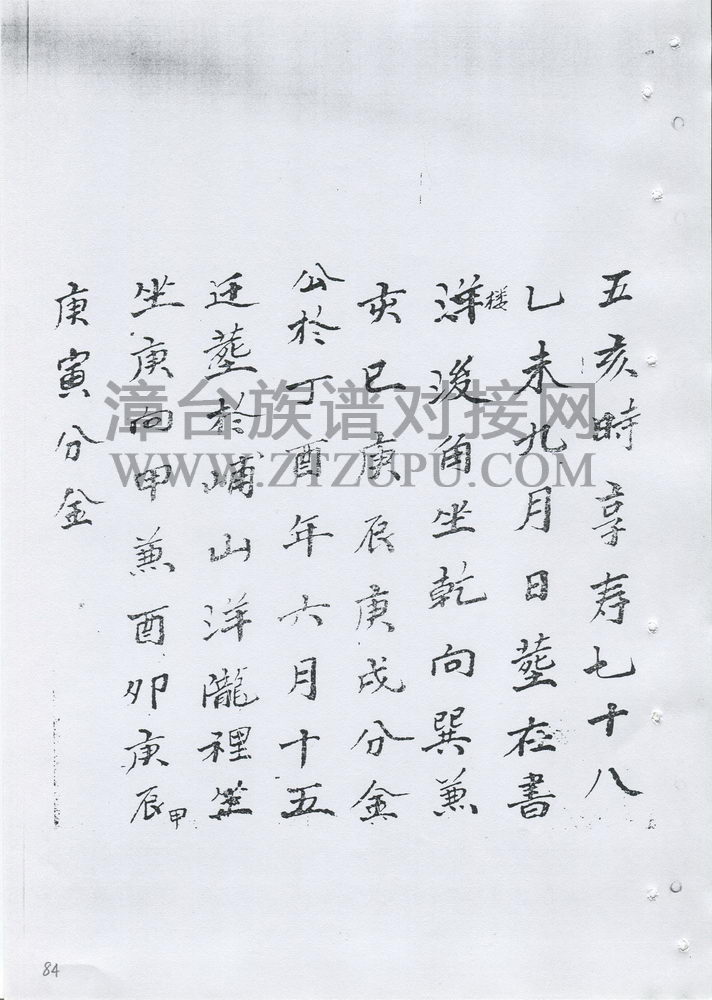 五亥時享寿七十八
乙未九月日塟在書
洋楼後角坐乾向巽兼
亥巳庚辰庚戌分金
公於丁酉年六月十五
迁塟於峬山洋隴裡坐
坐庚向甲兼酉卯庚辰甲
庚寅分金
漳台族谱对接网
WWW.ZTZUPU.COM
84